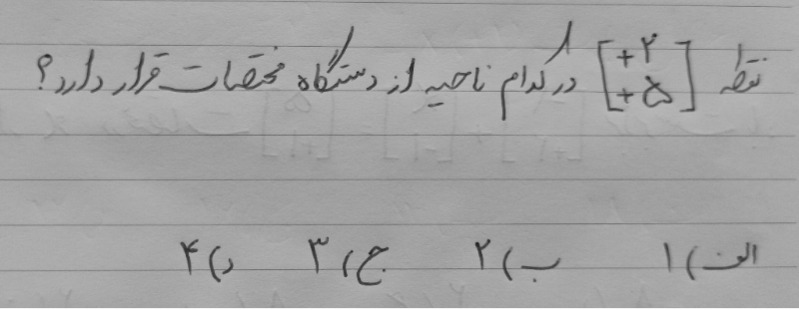 نقطه [+۲ +۵] در کدام ناحیه از دستگاه مختصات قرار دارد؟
الف) ۱ ب) ۲ ج) ۳ د) ۴